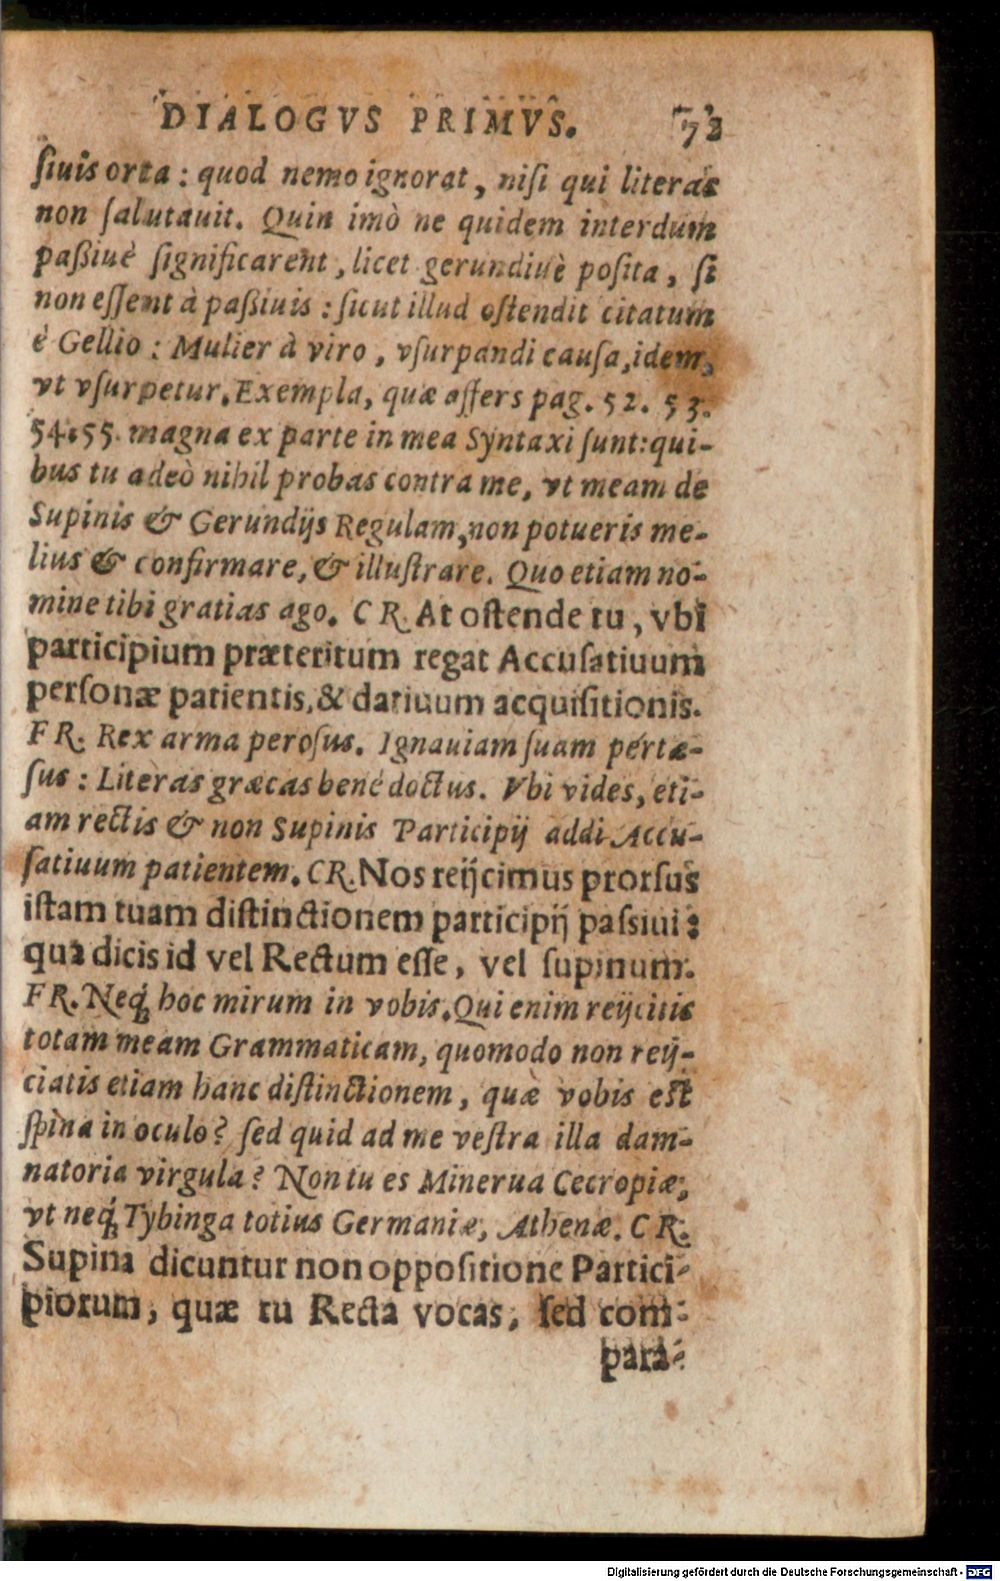 DIALOGVS PRIMVS. 73
ſiuis orta: quod nemo ignorat, niſi qui literas
non ſalutauit. Quin imò ne quidem interdum
paßiuè ſignificarent, licet gerundiuè poſita, ſi
non eſſent à paßiuis: ſicut illud oſtendit citatum
è Gellio: Mulier à viro, vſurpandi cauſa, idem,
vt vſurpetur. Exempla, quæ affers pag. 52. 53.
54. 55. magna ex parte in mea Syntaxi ſunt: qui-
bus tu adeò nihil probas contra me, vt meam de
Supinis & Gerundijs Regulam, non potueris me-
lius & confirmare, & illuſtrare. Quo etiam no-
mine tibi gratias ago. CR. At oſtende tu, vbi
participium præteritum regat Accuſatiuum
perſonæ patientis, & datiuum acquiſitionis.
FR. Rex arma peroſus. Ignauiam ſuam pertæ-
ſus: Literas græcas benè doctus. Vbi vides, eti-
am rectis & non Supinis Participij addi Accu-
ſatiuum patientem. CR. Nos reijcimus prorſus
iſtam tuam diſtinctionem participij paſsiui:
qua dicis id vel Rectum eſſe, vel ſupinum.
FR. Neq; hoc mirum in vobis. Qui enim reijcitis
totam meam Grammaticam, quomodo non reij-
ciatis etiam hanc diſtinctionem, quæ vobis eſt
ſpina in oculo? ſed quid ad me veſtra illa dam-
natoria virgula? Non tu es Minerua Cecropiæ,
vt neq; Tybinga totius Germaniæ, Athenæ. CR.
Supina dicuntur non oppoſitione Partici-
piorum, quæ tu Recta vocas, ſed com-
para-
Digitalisierung gefördert durch die Deutsche Forschungsgemeinschaft - DFG